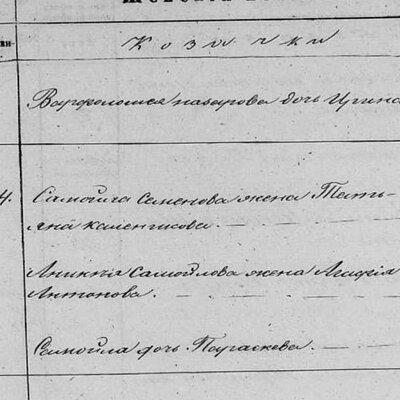 Козички
Варфоломея назарова дочь Ирина
4.
Самойла Семенова жена Тать-
яна каленикова.
Аникия Самойлова жена Агафія
Антонова.
Самойла дочь Параскева.